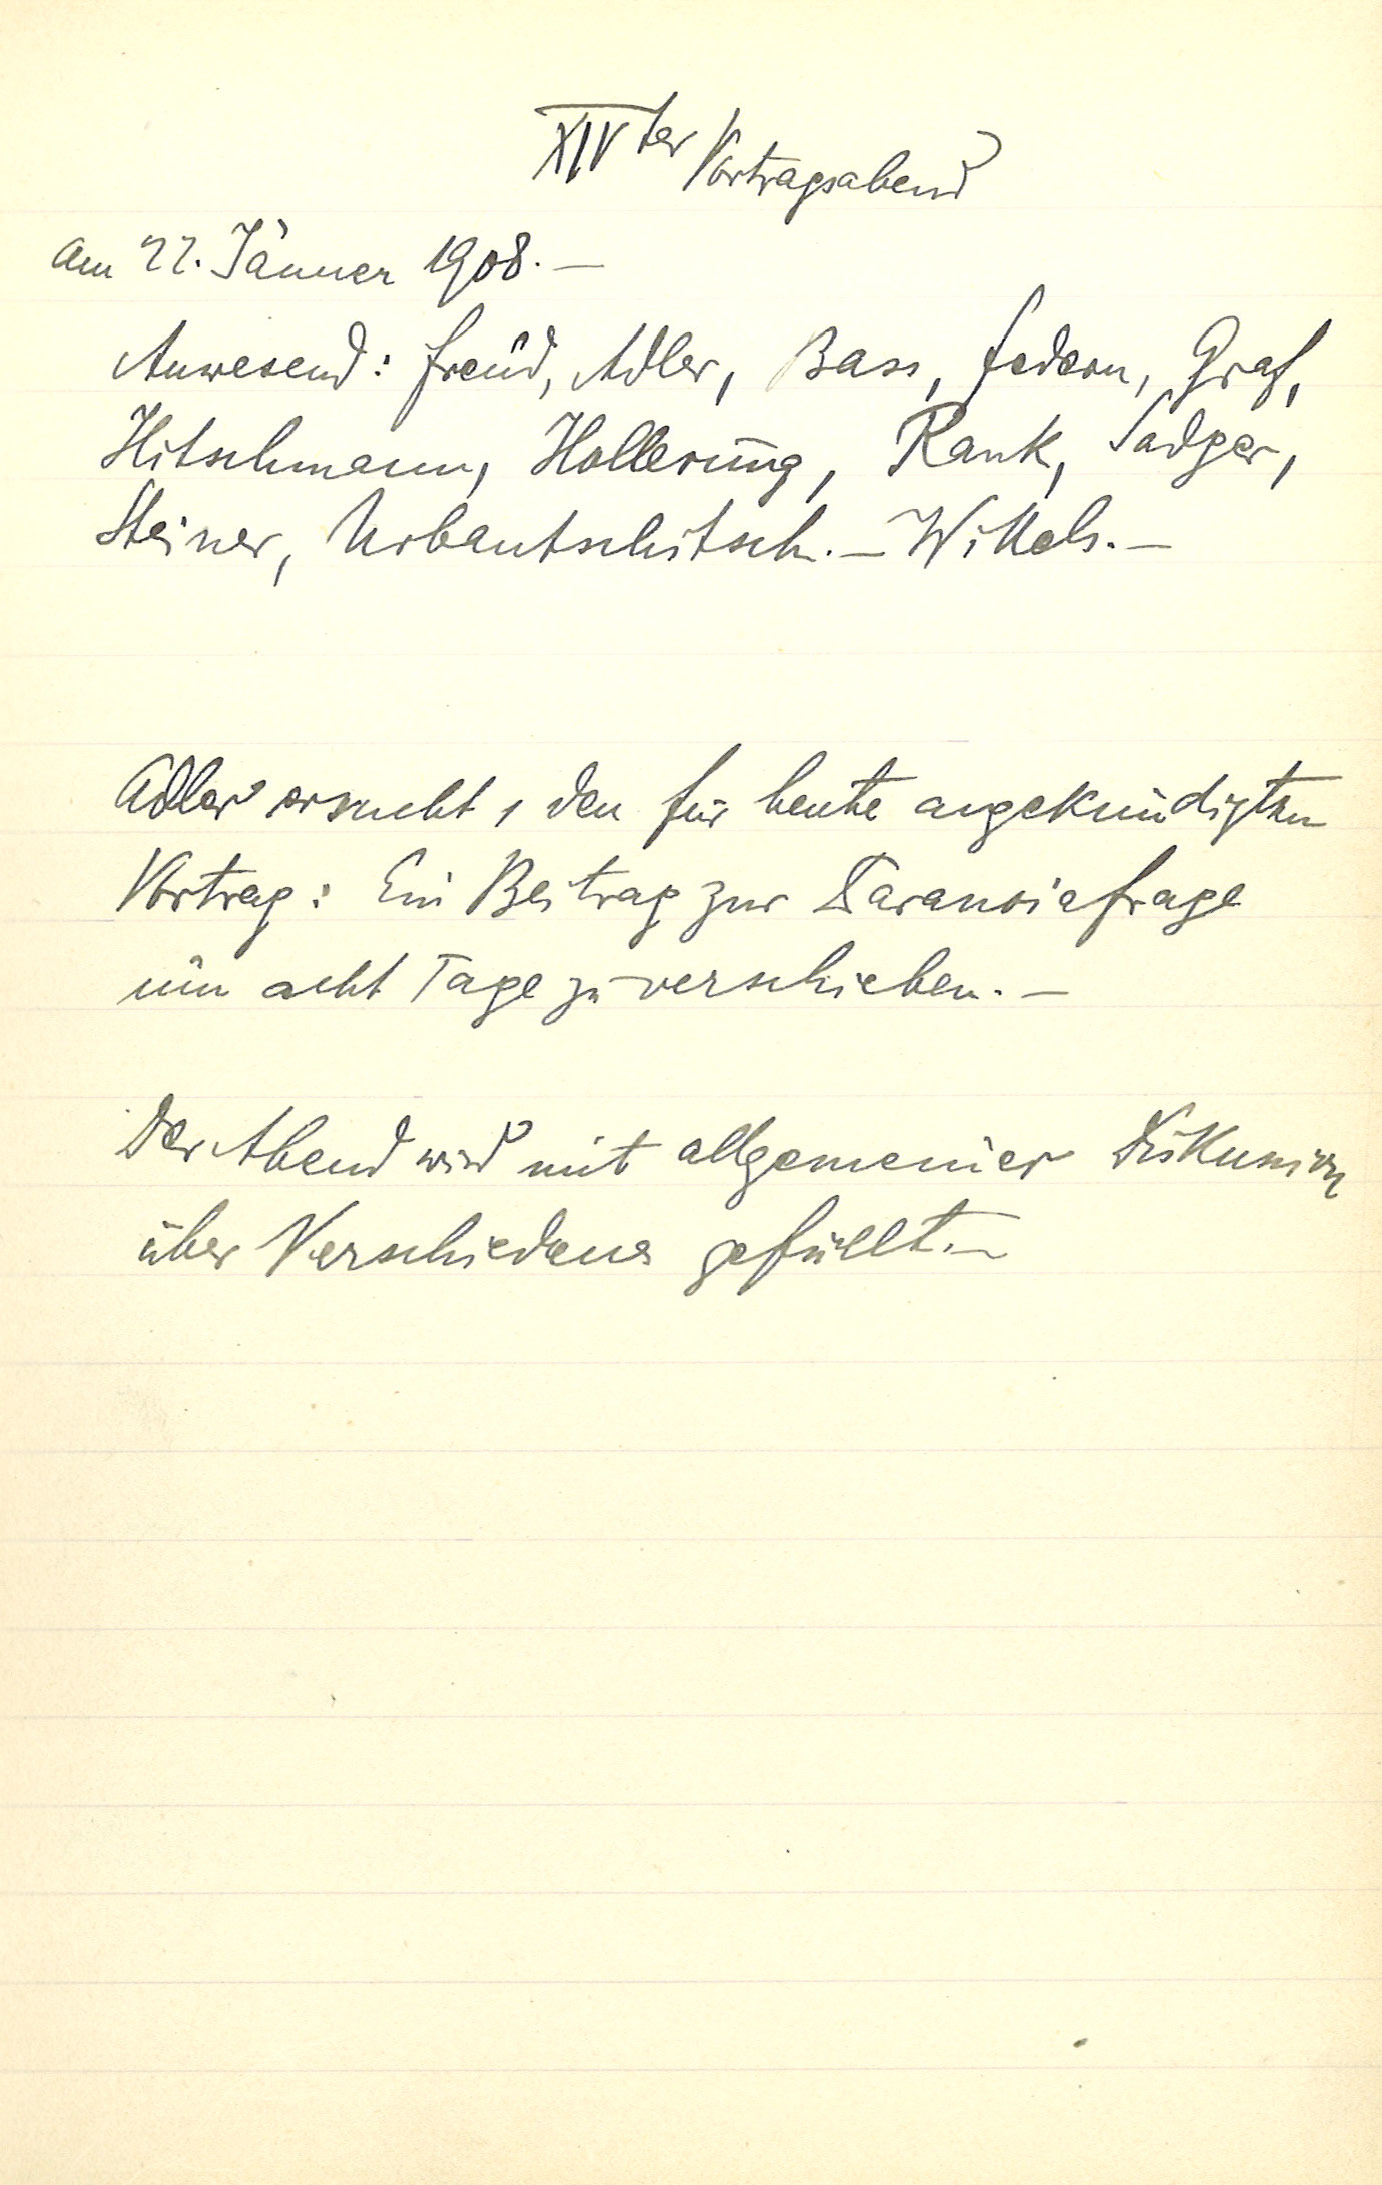 XIVter Vortragsabend
am 22. Jänner 1908. —
Anwesend: Freud, Adler, Bass, Federn, Graf,
Hitschmann, Hollerung, Rank, Sadger,
Steiner, Urbantschitsch. — Wittels. —
Adler ersucht, den für heute angekündigten
Vortrag: Ein Beitrag zur Paranoiafrage
um acht Tage zu verschieben. —
Der Abend wird mit allgemeiner Diskussion
über Verschiedenes gefüllt. —